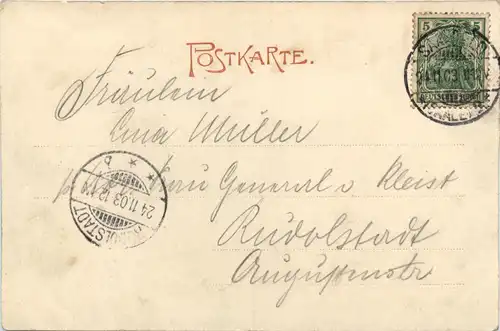 POSTKARTE.
5 5
24.11.03
(SAALE)
Fräulein
Lina Müller
Frau General v Kleist
24 11 03 12-1 N
RUDOLSTADT
b
Rudolstadt
Augustenstr